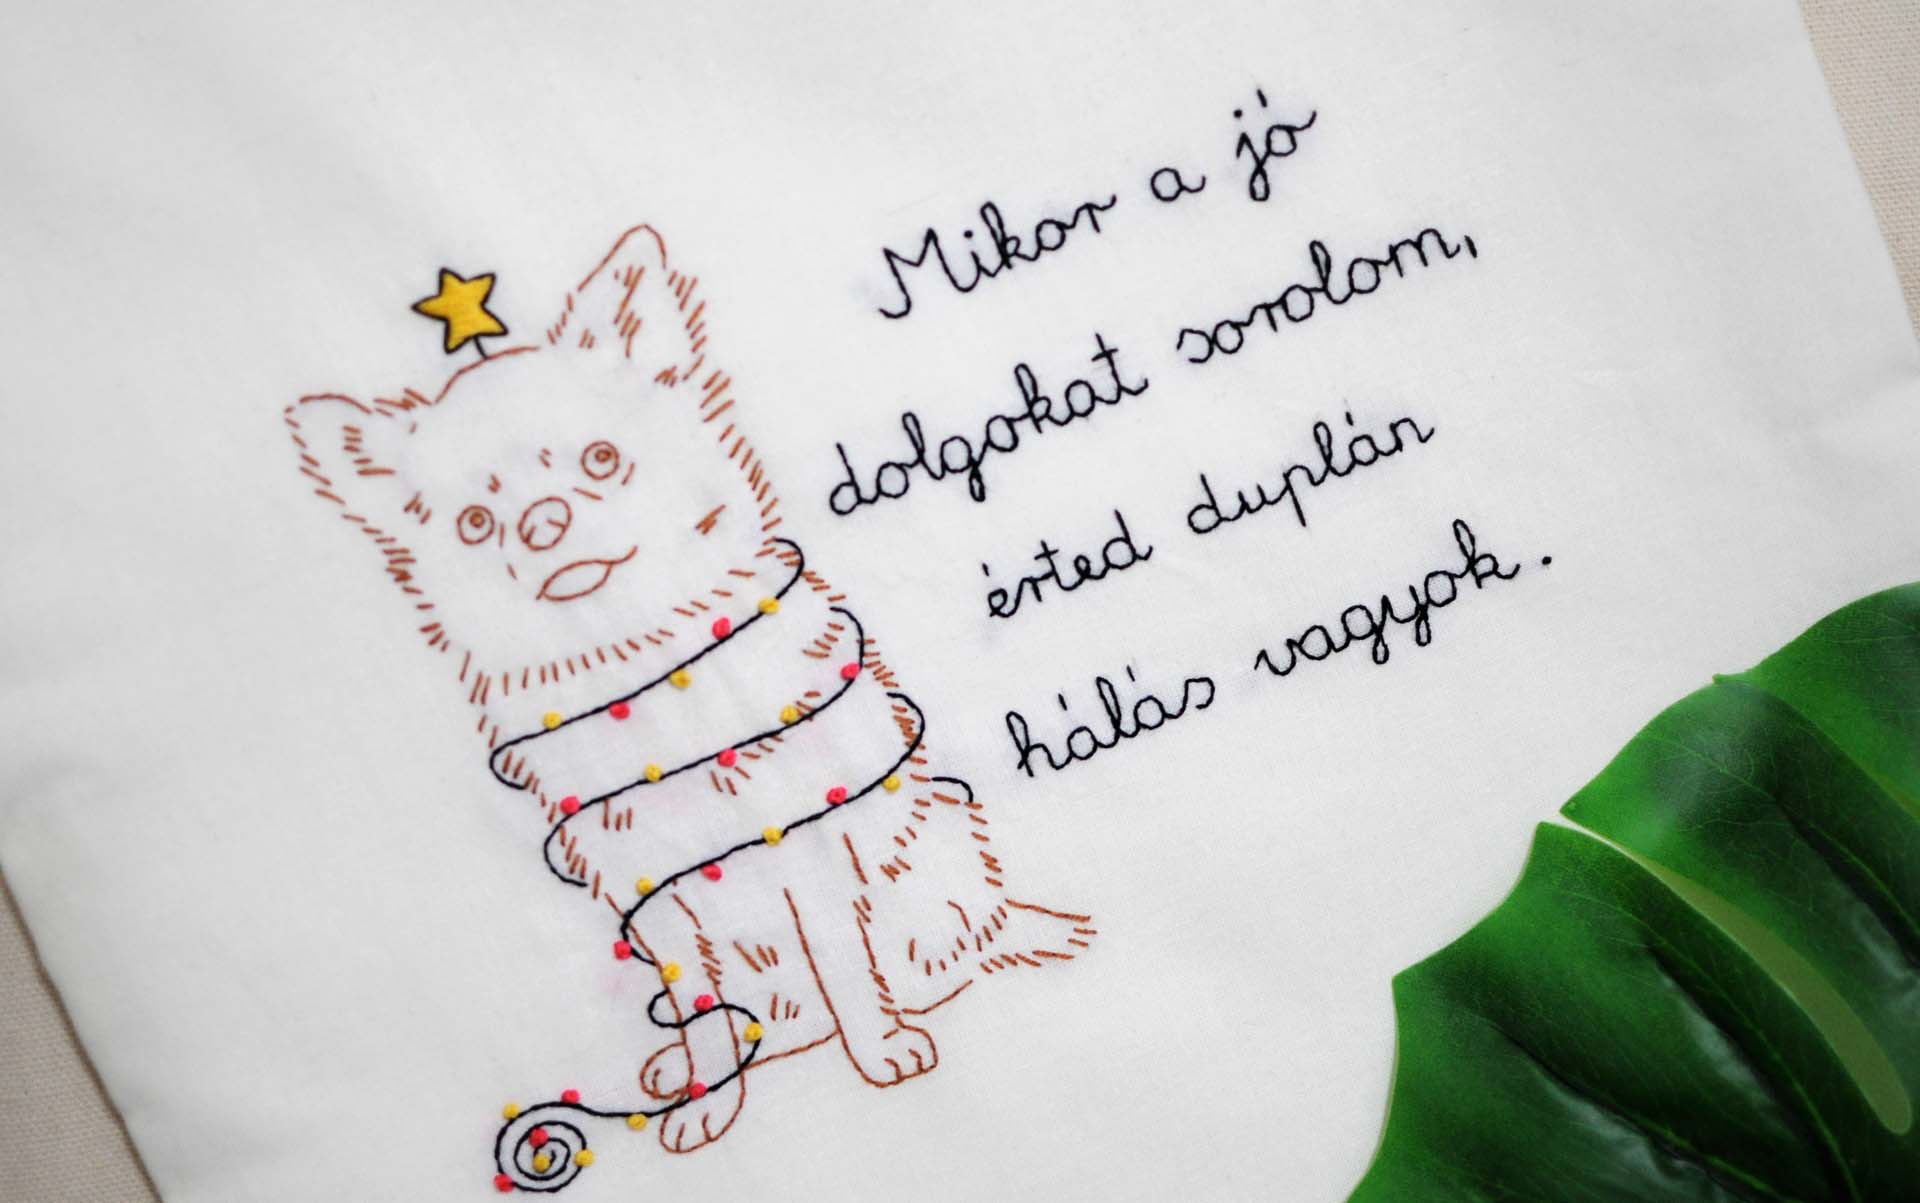 Mikor a jó
dolgokat sorolom,
érted duplán
hálás vagyok.